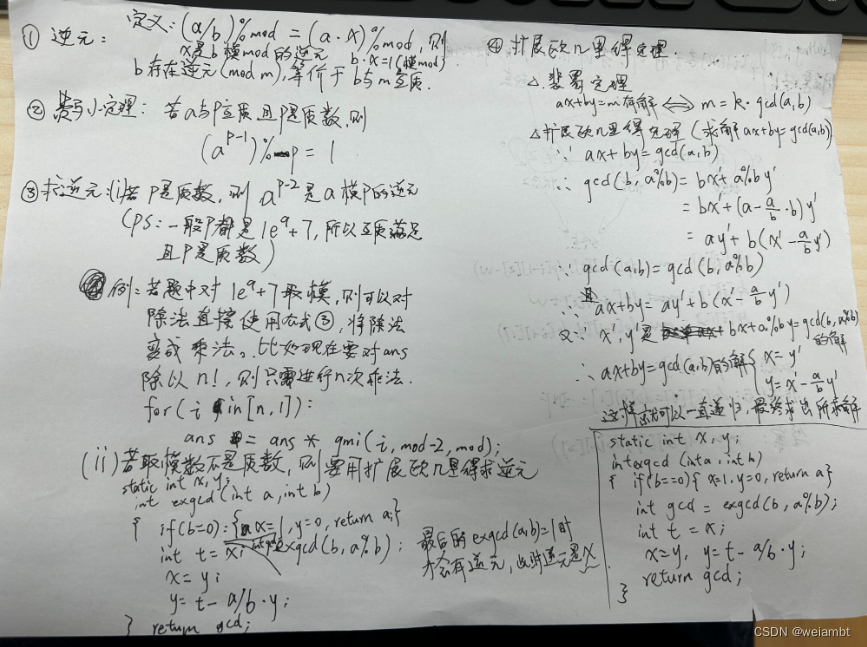 ① 逆元: 定义:(a/b)%mod = (a·x)%mod, 则
x是b模mod的逆元 b·x=1(模mod)
b存在逆元(mod m),等价于b与m互质.
② 费马小定理: 若a与p互质且p是质数,则
(a^{p-1})%p = 1
③ 求逆元:(i)若p是质数,则 a^{p-2}是a模p的逆元
(PS:一般p都是1e^9+7,所以互质满足
且p是质数)
例:若题中对1e^9+7取模,则可以对
除法直接使用公式③,将除法
变成乘法。比如现在要对ans
除以n!,则只需进行n次乘法.
for(i in[n,1]):
ans = ans * qmi(i, mod-2, mod);
(ii)若取模数不是质数,则要用扩展欧几里得求逆元
static int x, y;
int exgcd(int a, int b)
{ if(b=0):{x=1, y=0, return a;}
int t = x; exgcd(b, a%b);
x = y;
y = t - a/b·y;
} return gcd;
最后的exgcd(a,b)=1时
才会有逆元,此时逆元是x
④ 扩展欧几里得定理.
△.裴蜀定理
ax+by=m有解 ⟺ m=k·gcd(a,b)
△扩展欧几里得定理(求解ax+by=gcd(a,b))
∵ ax+by=gcd(a,b)
∴ gcd(b,a%b)=bx'+a%by'
=bx'+(a-a/b·b)y'
=ay'+b(x'-a/b y')
∵ gcd(a,b)=gcd(b,a%b)
∴ 且 ax+by=ay'+b(x'-a/b y')
又∵ x',y'是bx+a%by=gcd(b,a%b)
的解
∴ ax+by=gcd(a,b)的解{ x=y'
y=x'-a/b y'
这样就可以一直递归,最终求出所求解
static int x, y;
int exgcd (int a, int b)
{ if(b==0){x=1, y=0, return a}
int gcd = exgcd(b, a%b);
int t = x;
x=y, y=t-a/b·y;
return gcd;
}
CSDN @weiambt